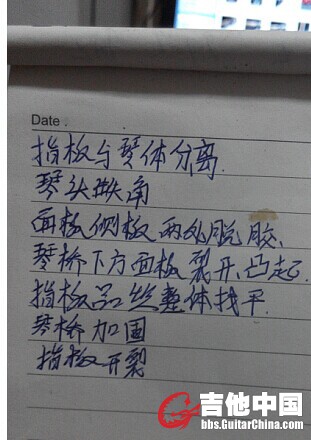 Date.
指板与琴体分离.
琴头缺角
面板侧板两处脱胶、
琴桥下方面板裂开、凸起.
指板品丝整体找平.
琴桥加固
指板开裂
吉他中国
bbs.GuitarChina.com